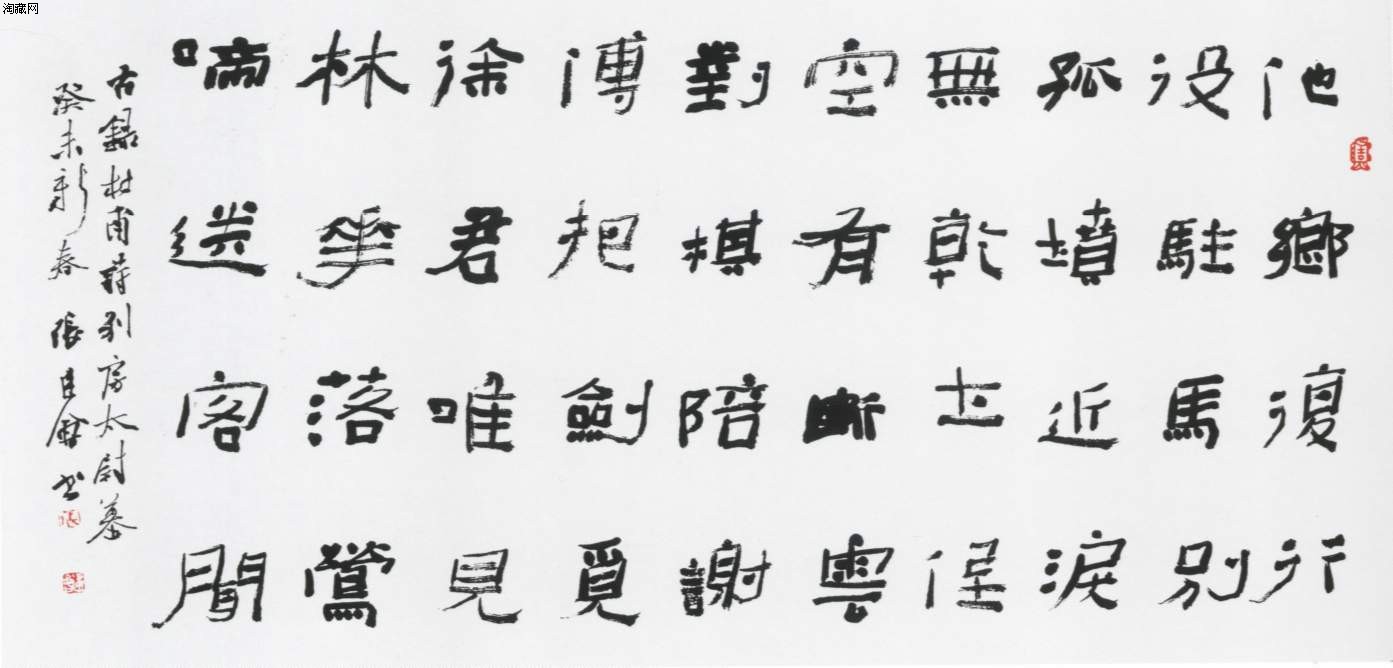 淘藏网
他鄉復行
役駐馬別
孤墳近淚
無乾土低
空有斷雲
對棋陪謝
傅把劍覓
徐君唯見
林華落鶯
啼送客聞
右錄杜甫詩別房太尉墓
癸未新春 張書